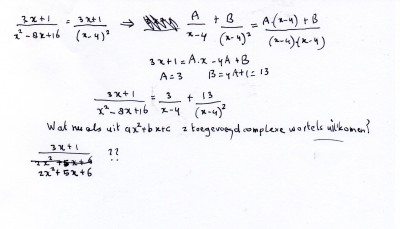 3x+1 / x²-8x+16 = 3x+1 / (x-4)² ⇒ A / x-4 + B / (x-4)² = A.(x-4)+B / (x-4)(x-4)
3x+1 = A.x -4A+B
A=3 B=4A+1=13
3x+1 / x²-8x+16 = 3 / x-4 + 13 / (x-4)²
Wat nu als uit ax²+bx+c 2 toegevoegd complexe wortels uitkomen?
3x+1 / 2x²+5x+6 ??